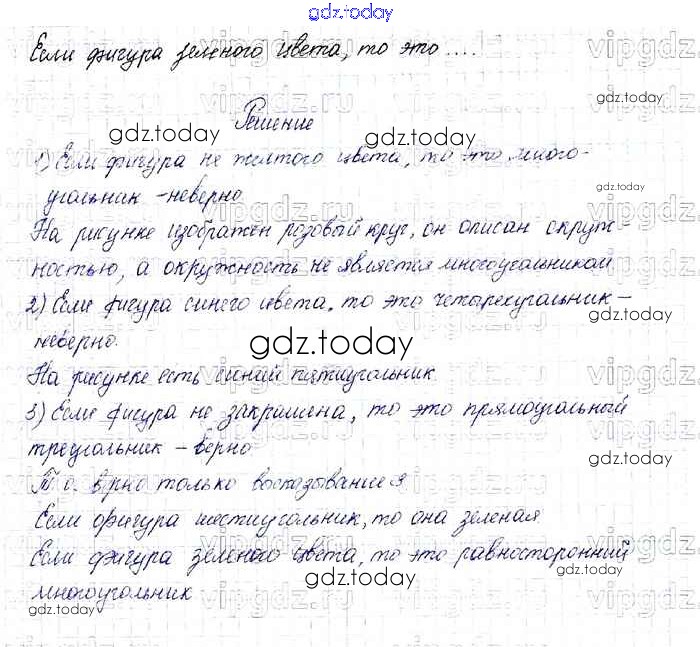 gdz.today
Если фигура зеленого цвета, то это ....
Решение
1) Если фигура не желтого цвета, то это много-
угольник - неверно
На рисунке изображен розовый круг, он описан окруж-
ностью, а окружность не является многоугольником
2) Если фигура синего цвета, то это четырехугольник -
неверно.
На рисунке есть синий пятиугольник
3) Если фигура не закрашена, то это прямоугольный
треугольник - верно
Т. о. врно только высказывание 3
Если фигура шестиугольник, то она зеленая
Если фигура зеленого цвета, то это равносторонний
многоугольник